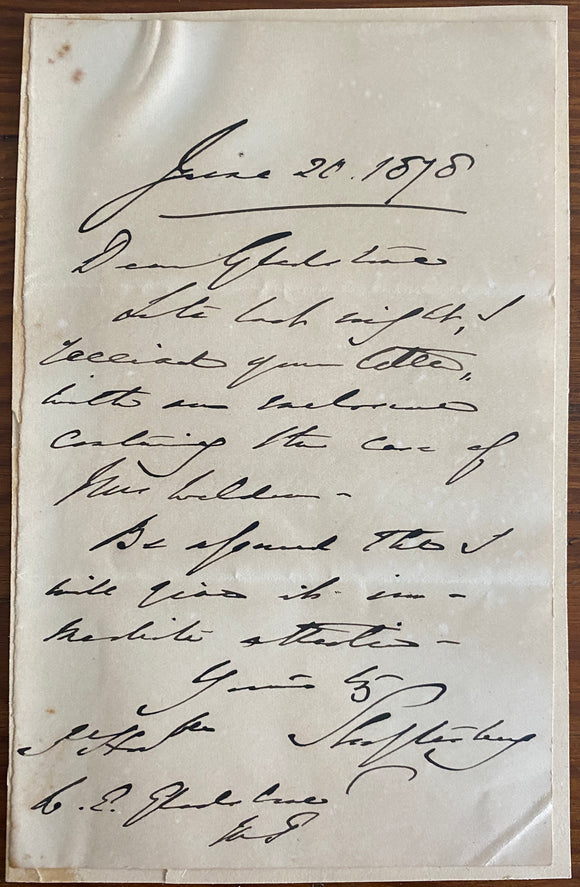 June 20. 1878
Dear Gladstone
Late last night, I
received your letter,
with an enclosure
containing the case of
Mrs Weldon -
Be assured that I
will give it im-
mediate attention -
Yours
Shaftesbury
Rt Hon
W. E. Gladstone
M P